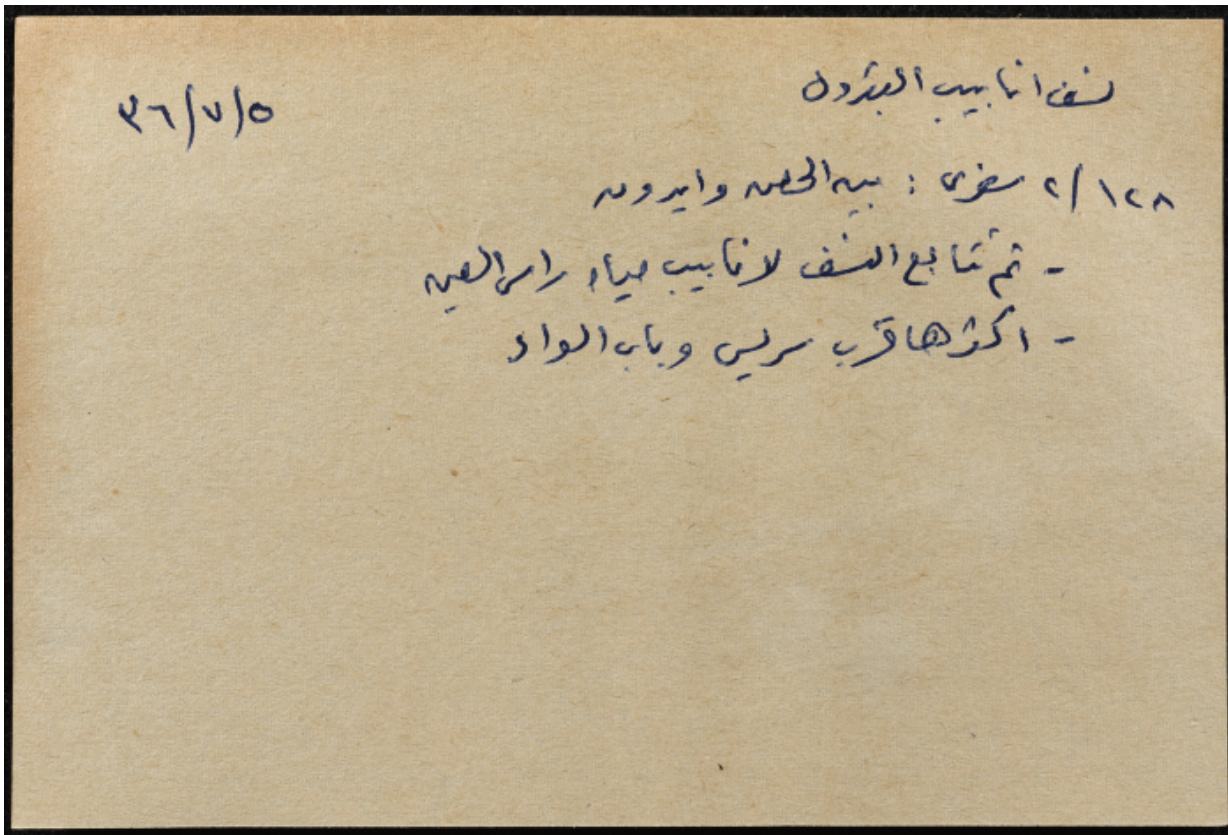 نسف انابيب البترول
٣٦/٧/٥
١٢٨/٢ سفري : بين الحصن وايدون
- ثم تتابع النسف لانابيب مياه راس العين
- اكثرها قرب سريس وباب الواد